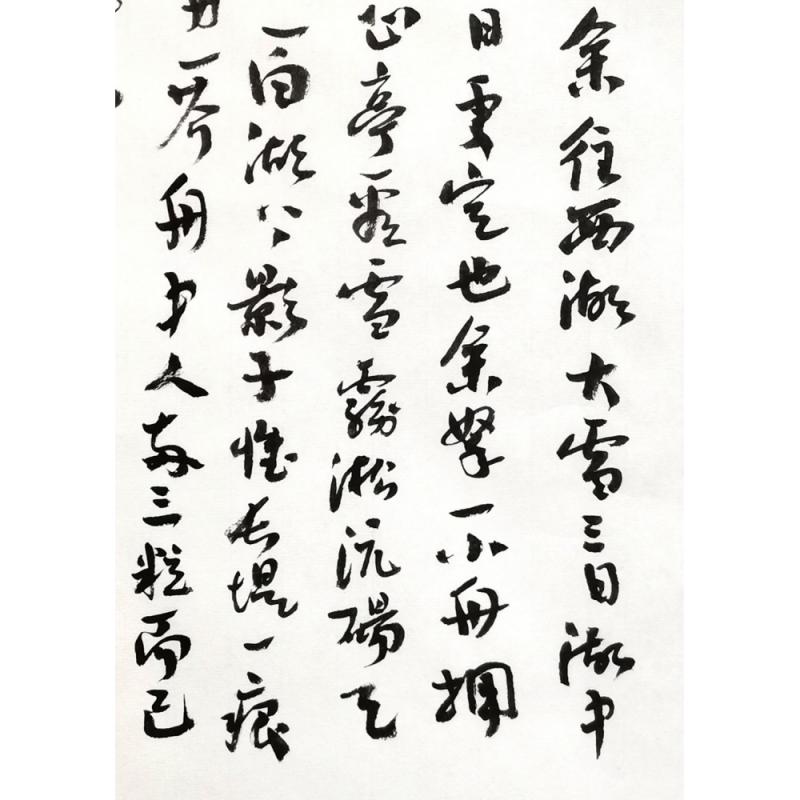 余住西湖大雪三日湖中
日更定也余拏一小舟拥
心亭看雪霧淞沆碭天
一白湖上影子惟長堤一痕
一芥舟中人兩三粒而已